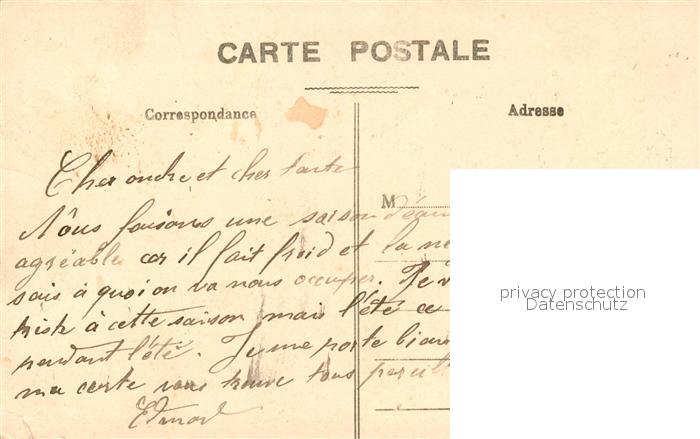 CARTE POSTALE
Correspondance
Adresse
Cher oncle et cher tante
M
Nous faisons une saison d'eau
agréable car il fait froid et la ne
sais à quoi on va nous occuper. Je v
à cette saison mais l'été ce
pendant l'été. Je me porte bien
ma carte vous trouve tous
privacy protection
Datenschutz